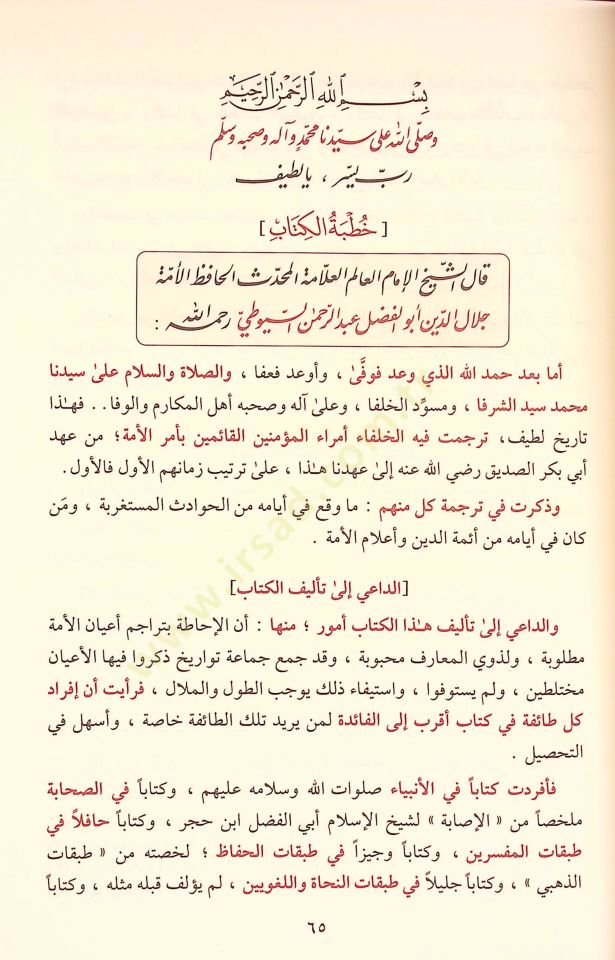 بِسْمِ اللهِ الرَّحْمٰنِ الرَّحِيْمِ
وصلّى الله على سيّدنا محمّدٍ وآله وصحبه وسلّم
ربِّ يسّر ، يا لطيف
[ خُطْبَةُ الكِتَابِ ]
قال الشيخ الإمام العالم العلّامة المحدّث الحافظ الأمّة
جلال الدّين أبو الفضل عبد الرحمٰن السيوطيّ رحمه الله :
أما بعد حمد الله الذي وعد فوفَّىٰ ، وأوعد فعفا ، والصلاة والسلام علىٰ سيدنا
محمد سيد الشرفا ، ومسوِّد الخلفا ، وعلىٰ آله وصحبه أهل المكارم والوفا . . فهٰذا
تاريخ لطيف، ترجمت فيه الخلفاء أمراء المؤمنين القائمين بأمر الأمة؛ من عهد
أبي بكر الصديق رضي الله عنه إلىٰ عهدنا هٰذا ، علىٰ ترتيب زمانهم الأول فالأول.
وذكرت في ترجمة كل منهم : ما وقع في أيامه من الحوادث المستغربة ، ومَن
كان في أيامه من أئمة الدين وأعلام الأمة .
[الداعي إلىٰ تأليف الكتاب]
والداعي إلىٰ تأليف هٰذا الكتاب أمور ؛ منها : أن الإحاطة بتراجم أعيان الأمة
مطلوبة ، ولذوي المعارف محبوبة ، وقد جمع جماعة تواريخ ذكروا فيها الأعيان
مختلطين ، ولم يستوفوا ، واستيفاء ذلك يوجب الطول والملال ، فرأيت أن إفراد
كل طائفة في كتاب أقرب إلى الفائدة لمن يريد تلك الطائفة خاصة ، وأسهل في
التحصيل .
فأفردت كتاباً في الأنبياء صلوات الله وسلامه عليهم ، وكتاباً في الصحابة
ملخصاً من « الإصابة » لشيخ الإسلام أبي الفضل ابن حجر ، وكتاباً حافلاً في
طبقات المفسرين ، وكتاباً وجيزاً في طبقات الحفاظ ؛ لخصته من « طبقات
الذهبي » ، وكتاباً جليلاً في طبقات النحاة واللغويين ، لم يؤلف قبله مثله ، وكتاباً
٦٥
www.irsad.com.tr